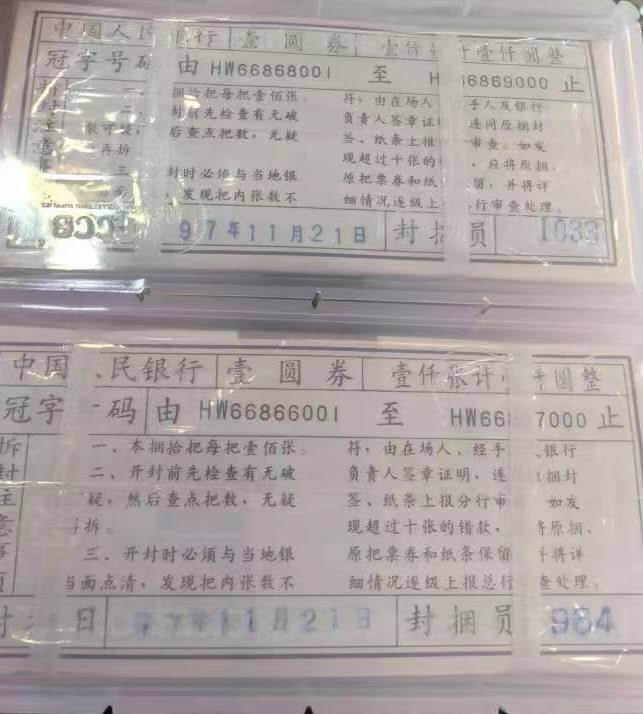 中国人民银行 壹圆券 壹仟张计壹仟圆整
冠字号码 由 HW66868001 至 H 6869000 止
捆拾把每把壹佰张。 符，由在场人 手人及银行
封前先检查有无破 负责人签章证 连同原捆封
疑， 后查点把数，无疑 签、纸条上报 审查。如发
再拆 现超过十张的 ，应将原捆、
三、 封时必须与当地银 原把票券和纸 留，并将详
发现把内张数不 细情况逐级上 行审查处理。
97年11月21日 封捆员 1033
中国 民银行 壹圆券 壹仟张计 圆整
冠字 码 由 HW66866001 至 HW66 7000 止
拆 一、本捆拾把每把壹佰张。 符，由在场人、经手 银行
封 二、开封前先检查有无破 负责人签章证明，连 捆封
注 疑，然后查点把数，无疑 签、纸条上报分行审 如发
意 拆。 现超过十张的错款， 将原捆、
事 三、开封时必须与当地银 原把票券和纸条保留 并将详
项 当面点清，发现把内张数不 细情况逐级上报总行 查处理。
封 日 97年11月21日 封捆员 984